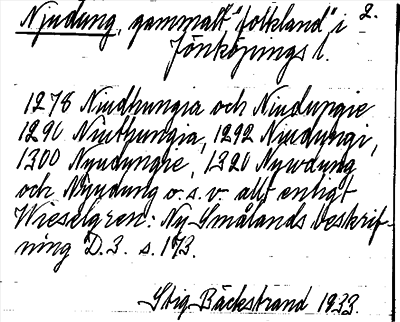 Njudung, gammalt "folkland" i 2.
Jönköpings l.
1278 Niudhungia och Niudungie
1290 Niuthungia, 1292 Niudungi,
1300 Nyudyngie, 1320 Nywdung
och Nyudung o. s. v. allt enligt
Wieselgren: Ny Smålands beskrif-
ning D.3. s. 173.
Stig Bäckstrand 1933.